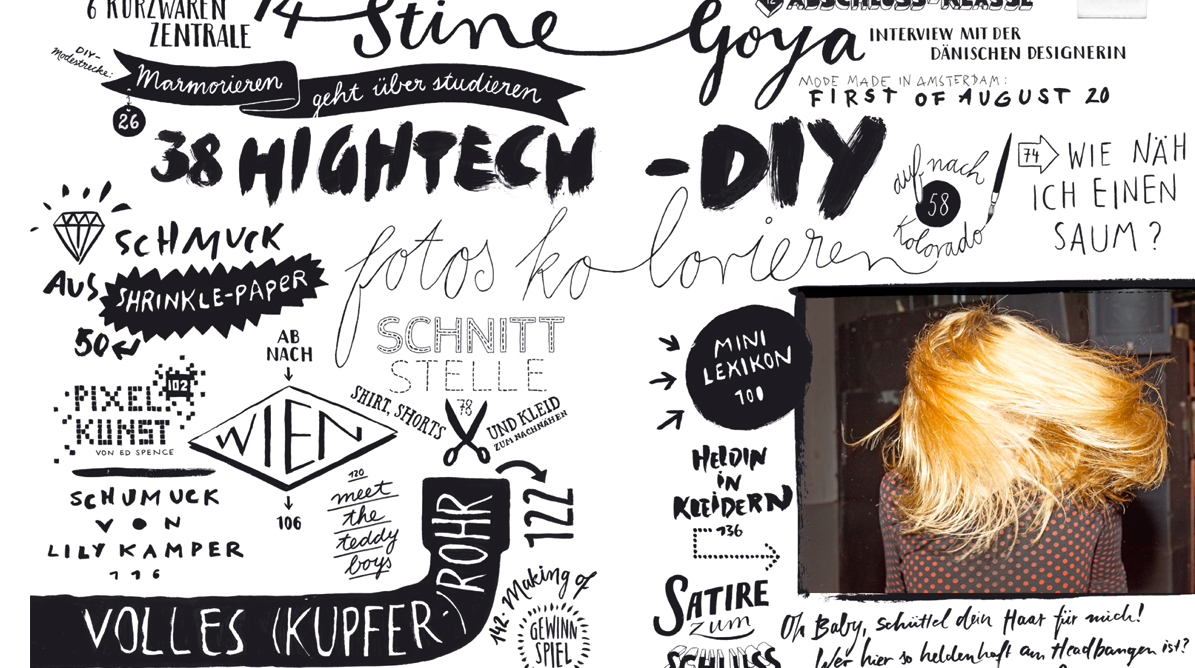 6 KURZWAREN
ZENTRALE
14
Stine Goya
ABSCHLUSS-KLASSE
INTERVIEW MIT DER
DÄNISCHEN DESIGNERIN
DIY-
Modestrecke:
Marmorieren
geht über studieren
26
MODE MADE IN AMSTERDAM:
FIRST OF AUGUST 20
38 HIGHTECH-DIY
auf nach
58
Kolorado
74
WIE NÄH
ICH EINEN
SAUM?
SCHMUCK
AUS SHRINKLE-PAPER
50
fotos kolorieren
SCHNITT
STELLE
78
SHIRT, SHORTS
UND KLEID
ZUM NACHNÄHEN
AB
NACH
WIEN
106
PIXEL
102
KUNST
VON ED SPENCE
SCHUMUCK
VON
LILY KAMPER
116
120
meet
the
teddy
boys
MINI
LEXIKON
100
HELDIN
IN
KLEIDERN
136
VOLLES (KUPFER-)ROHR
122
142. Making of
GEWINN
SPIEL
SATIRE
zum
SCHLUSS
Oh Baby, schüttel dein Haar für mich!
Wer hier so heldenhaft am Headbangen ist?